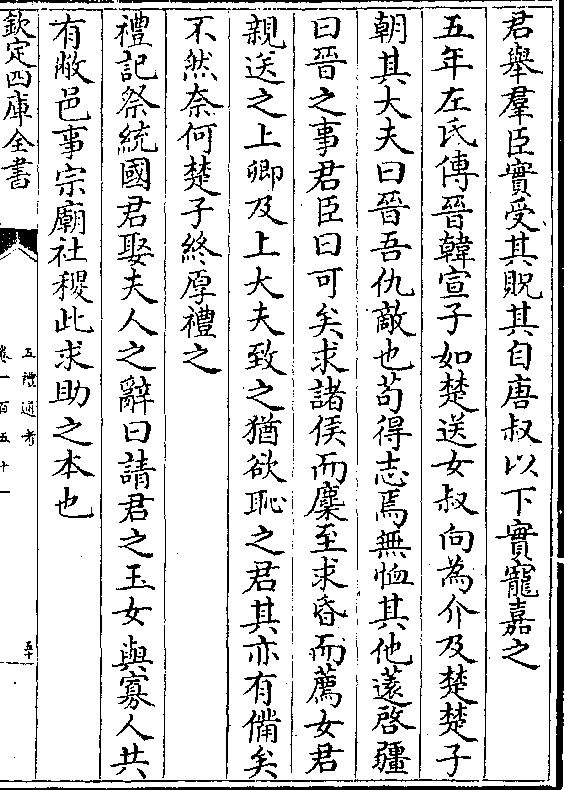 君舉羣臣實受其貺其自唐叔以下實寵嘉之
五年左氏傳晉韓宣子如楚送女叔向為介及楚楚子
朝其大夫曰晉吾仇敵也茍得志焉無恤其他薳啓疆
曰晉之事君臣曰可矣求諸侯而麇至求昏而薦女君
親送之上卿及上大夫致之猶欲恥之君其亦有備矣
不然奈何楚子終厚禮之
禮記祭統國君娶夫人之辭曰請君之玉女與寡人共
有敝邑事宗廟社稷此求助之本也
欽定四庫全書
五禮通考
卷一百五十一